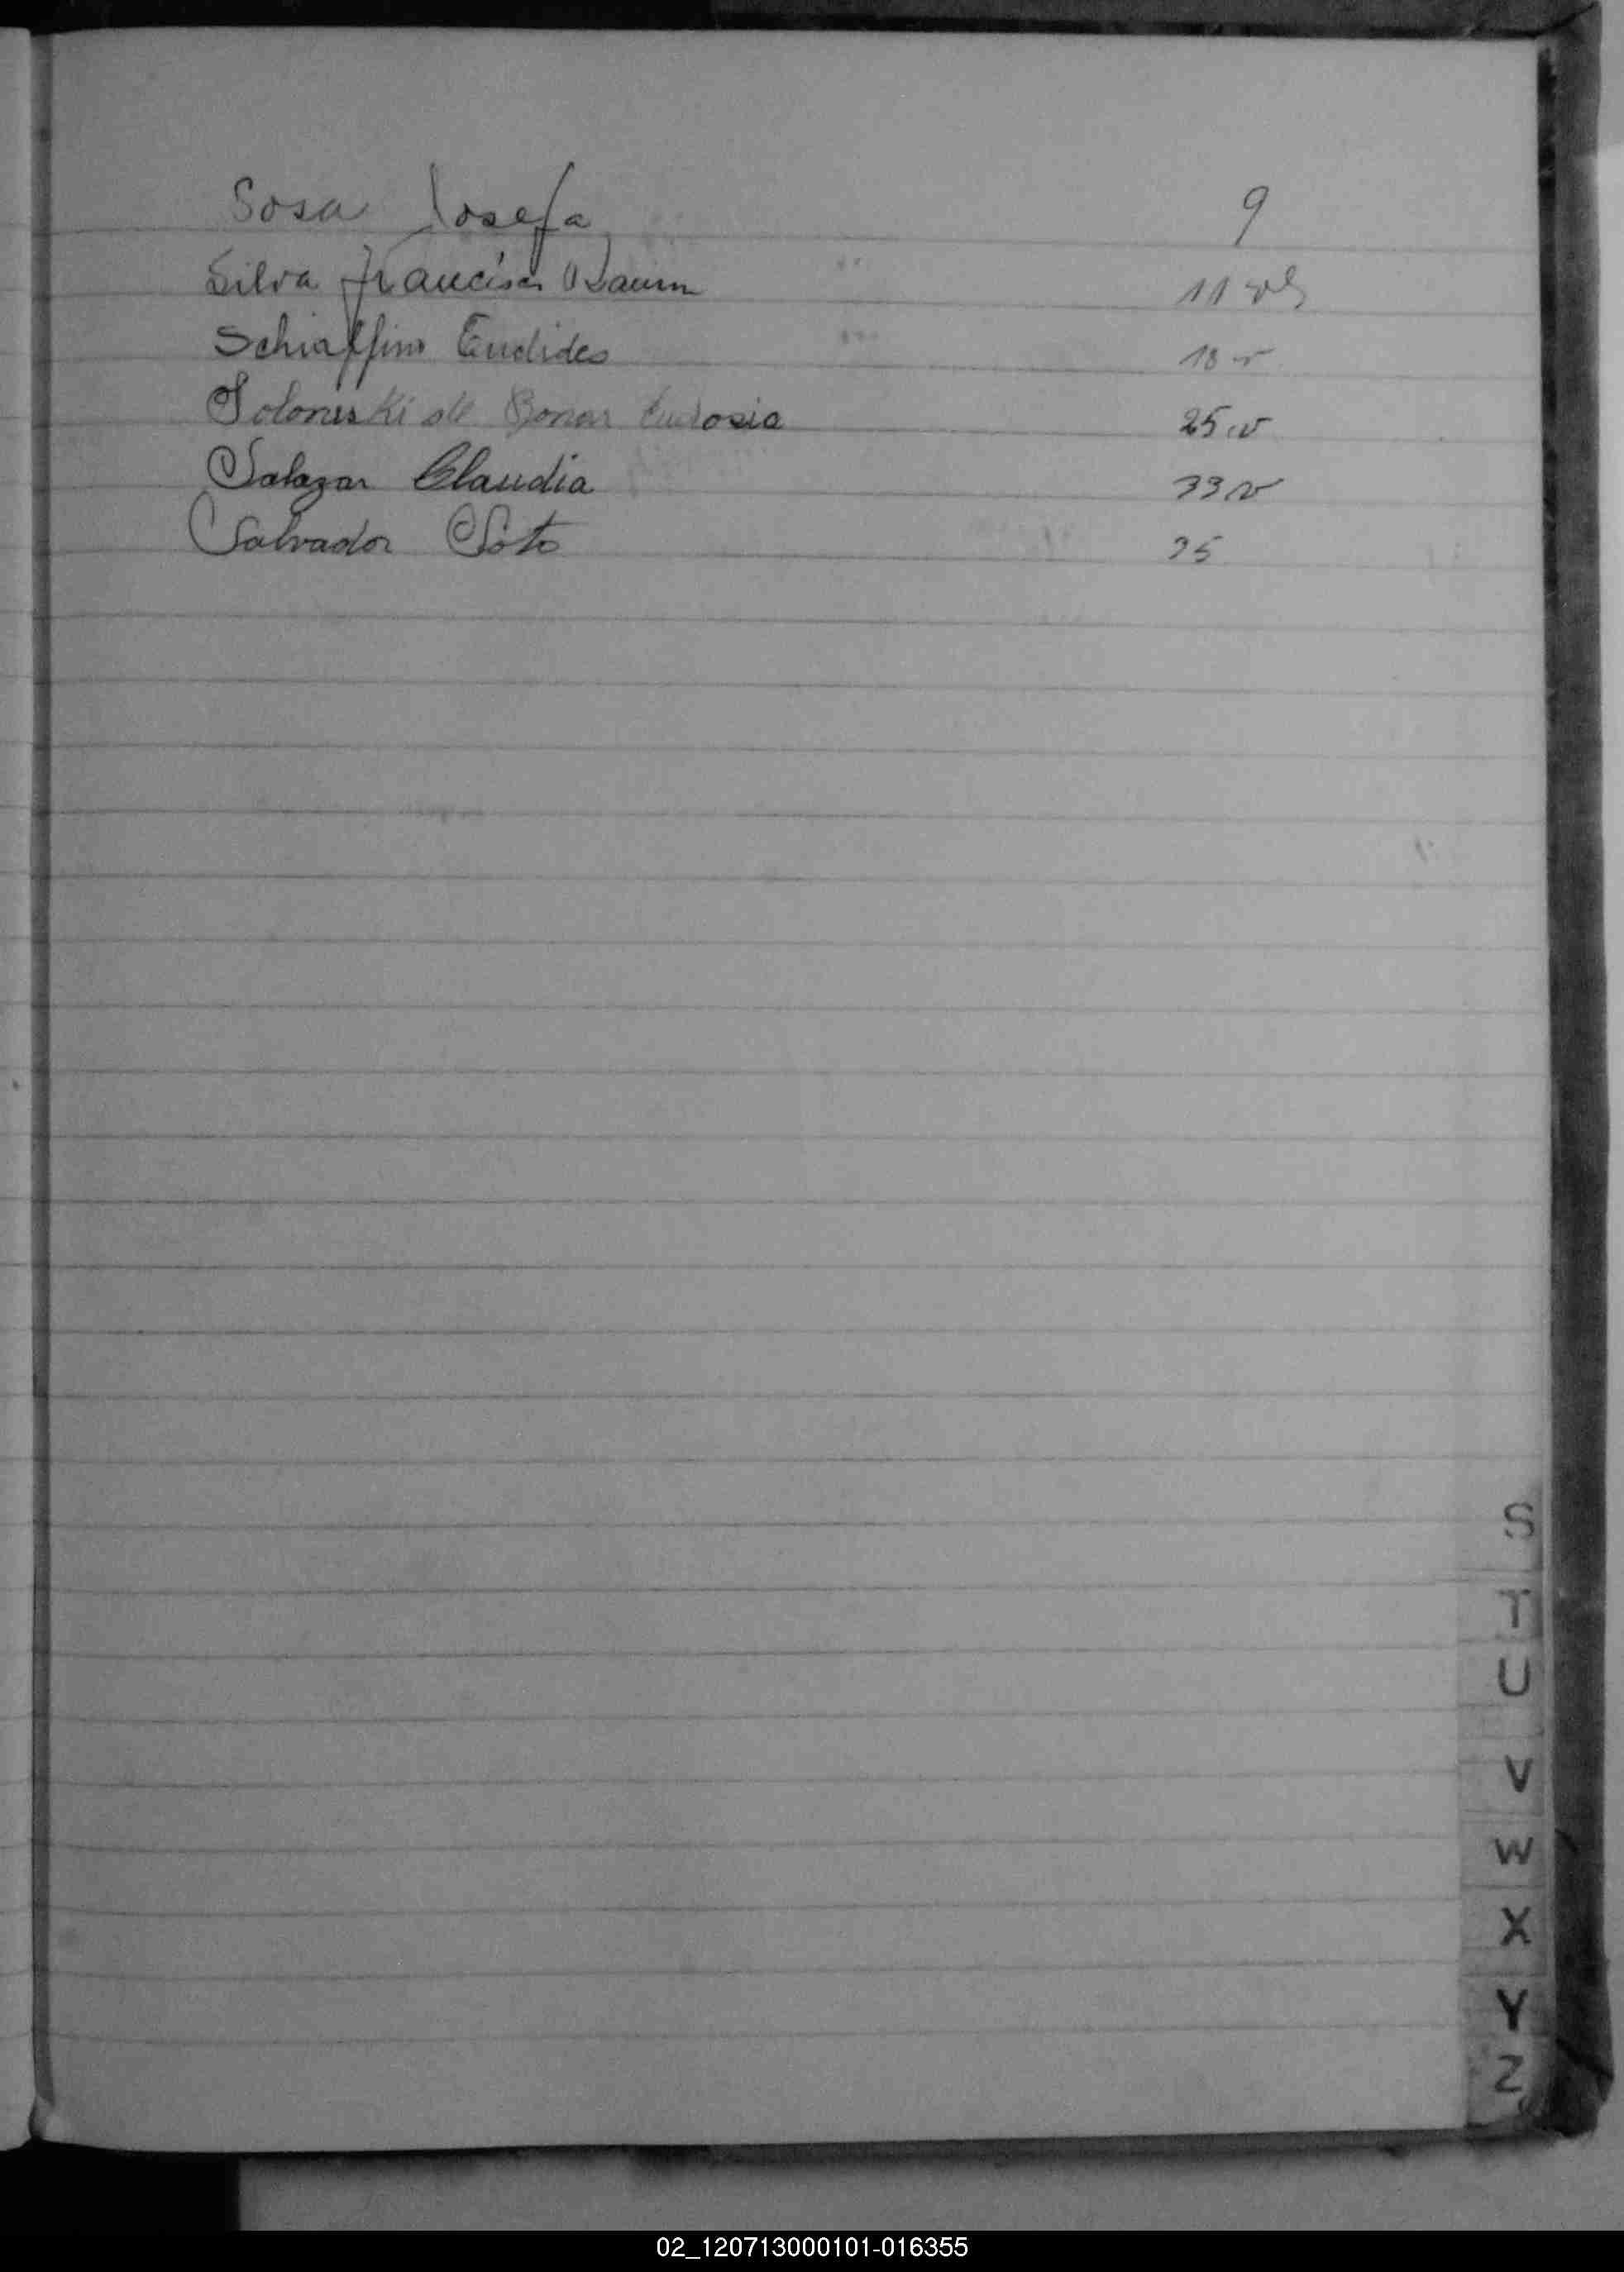 Sosa Josefa 9
Silva Francisca 11
Schiaffino Euclides 18 v
Soloneski de Eudosia 25 v
Salazar Claudia 33 v
Salvador Soto 35
S
T
U
V
W
X
Y
Z
02_120713000101-016355